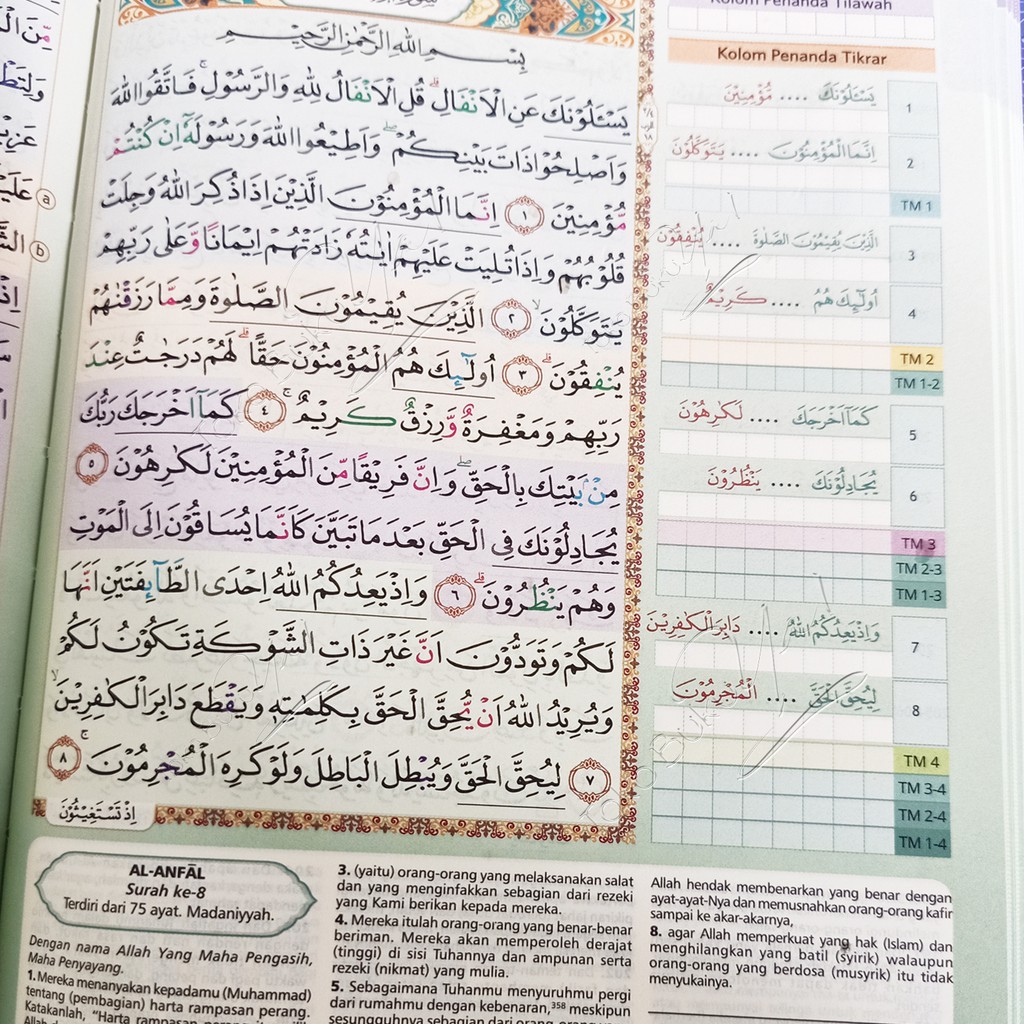 بِسْمِ اللّٰهِ الرَّحْمٰنِ الرَّحِيْمِ
يَسْـَٔلُوْنَكَ عَنِ الْاَنْفَالِۗ قُلِ الْاَنْفَالُ لِلّٰهِ وَالرَّسُوْلِۚ فَاتَّقُوا اللّٰهَ
وَاَصْلِحُوْا ذَاتَ بَيْنِكُمْۖ وَاَطِيْعُوا اللّٰهَ وَرَسُوْلَهٗٓ اِنْ كُنْتُمْ
مُّؤْمِنِيْنَ ۝١ اِنَّمَا الْمُؤْمِنُوْنَ الَّذِيْنَ اِذَا ذُكِرَ اللّٰهُ وَجِلَتْ
قُلُوْبُهُمْ وَاِذَا تُلِيَتْ عَلَيْهِمْ اٰيٰتُهٗ زَادَتْهُمْ اِيْمَانًا وَّعَلٰى رَبِّهِمْ
يَتَوَكَّلُوْنَۙ ۝٢ الَّذِيْنَ يُقِيْمُوْنَ الصَّلٰوةَ وَمِمَّا رَزَقْنٰهُمْ
يُنْفِقُوْنَۗ ۝٣ اُولٰۤىِٕكَ هُمُ الْمُؤْمِنُوْنَ حَقًّاۗ لَهُمْ دَرَجٰتٌ عِنْدَ
رَبِّهِمْ وَمَغْفِرَةٌ وَّرِزْقٌ كَرِيْمٌۚ ۝٤ كَمَآ اَخْرَجَكَ رَبُّكَ
مِنْۢ بَيْتِكَ بِالْحَقِّۖ وَاِنَّ فَرِيْقًا مِّنَ الْمُؤْمِنِيْنَ لَكٰرِهُوْنَ ۝٥
يُجَادِلُوْنَكَ فِى الْحَقِّ بَعْدَ مَا تَبَيَّنَ كَاَنَّمَا يُسَاقُوْنَ اِلَى الْمَوْتِ
وَهُمْ يَنْظُرُوْنَۗ ۝٦ وَاِذْ يَعِدُكُمُ اللّٰهُ اِحْدَى الطَّاۤىِٕفَتَيْنِ اَنَّهَا
لَكُمْ وَتَوَدُّوْنَ اَنَّ غَيْرَ ذَاتِ الشَّوْكَةِ تَكُوْنُ لَكُمْ
وَيُرِيْدُ اللّٰهُ اَنْ يُّحِقَّ الْحَقَّ بِكَلِمٰتِهٖ وَيَقْطَعَ دَابِرَ الْكٰفِرِيْنَۙ
۝٧ لِيُحِقَّ الْحَقَّ وَيُبْطِلَ الْبَاطِلَ وَلَوْ كَرِهَ الْمُجْرِمُوْنَۚ ۝٨
اِذْ تَسْتَغِيْثُوْنَ
Kolom Penanda Tilawah
Kolom Penanda Tikrar
يَسْـَٔلُوْنَكَ .... مُّؤْمِنِيْنَ 1
اِنَّمَا الْمُؤْمِنُوْنَ .... يَتَوَكَّلُوْنَ 2
TM 1
الَّذِيْنَ يُقِيْمُوْنَ الصَّلٰوةَ .... يُنْفِقُوْنَ 3
اُولٰۤىِٕكَ هُمُ .... كَرِيْمٌ 4
TM 2
TM 1-2
كَمَآ اَخْرَجَكَ .... لَكٰرِهُوْنَ 5
يُجَادِلُوْنَكَ .... يَنْظُرُوْنَ 6
TM 3
TM 2-3
TM 1-3
وَاِذْ يَعِدُكُمُ اللّٰهُ .... دَابِرَ الْكٰفِرِيْنَ 7
لِيُحِقَّ الْحَقَّ .... الْمُجْرِمُوْنَ 8
TM 4
TM 3-4
TM 2-4
TM 1-4
AL-ANFĀL
Surah ke-8
Terdiri dari 75 ayat. Madaniyyah.
Dengan nama Allah Yang Maha Pengasih,
Maha Penyayang.
1. Mereka menanyakan kepadamu (Muhammad)
tentang (pembagian) harta rampasan perang.
Katakanlah, "Harta rampasan perang
3. (yaitu) orang-orang yang melaksanakan salat
dan yang menginfakkan sebagian dari rezeki
yang Kami berikan kepada mereka.
4. Mereka itulah orang-orang yang benar-benar
beriman. Mereka akan memperoleh derajat
(tinggi) di sisi Tuhannya dan ampunan serta
rezeki (nikmat) yang mulia.
5. Sebagaimana Tuhanmu menyuruhmu pergi
dari rumahmu dengan kebenaran,³⁵⁸ meskipun
sesungguhnya sebagian dari orang-orang
Allah hendak membenarkan yang benar dengan
ayat-ayat-Nya dan memusnahkan orang-orang kafir
sampai ke akar-akarnya,
8. agar Allah memperkuat yang hak (Islam) dan
menghilangkan yang batil (syirik) walaupun
orang-orang yang berdosa (musyrik) itu tidak
menyukainya.